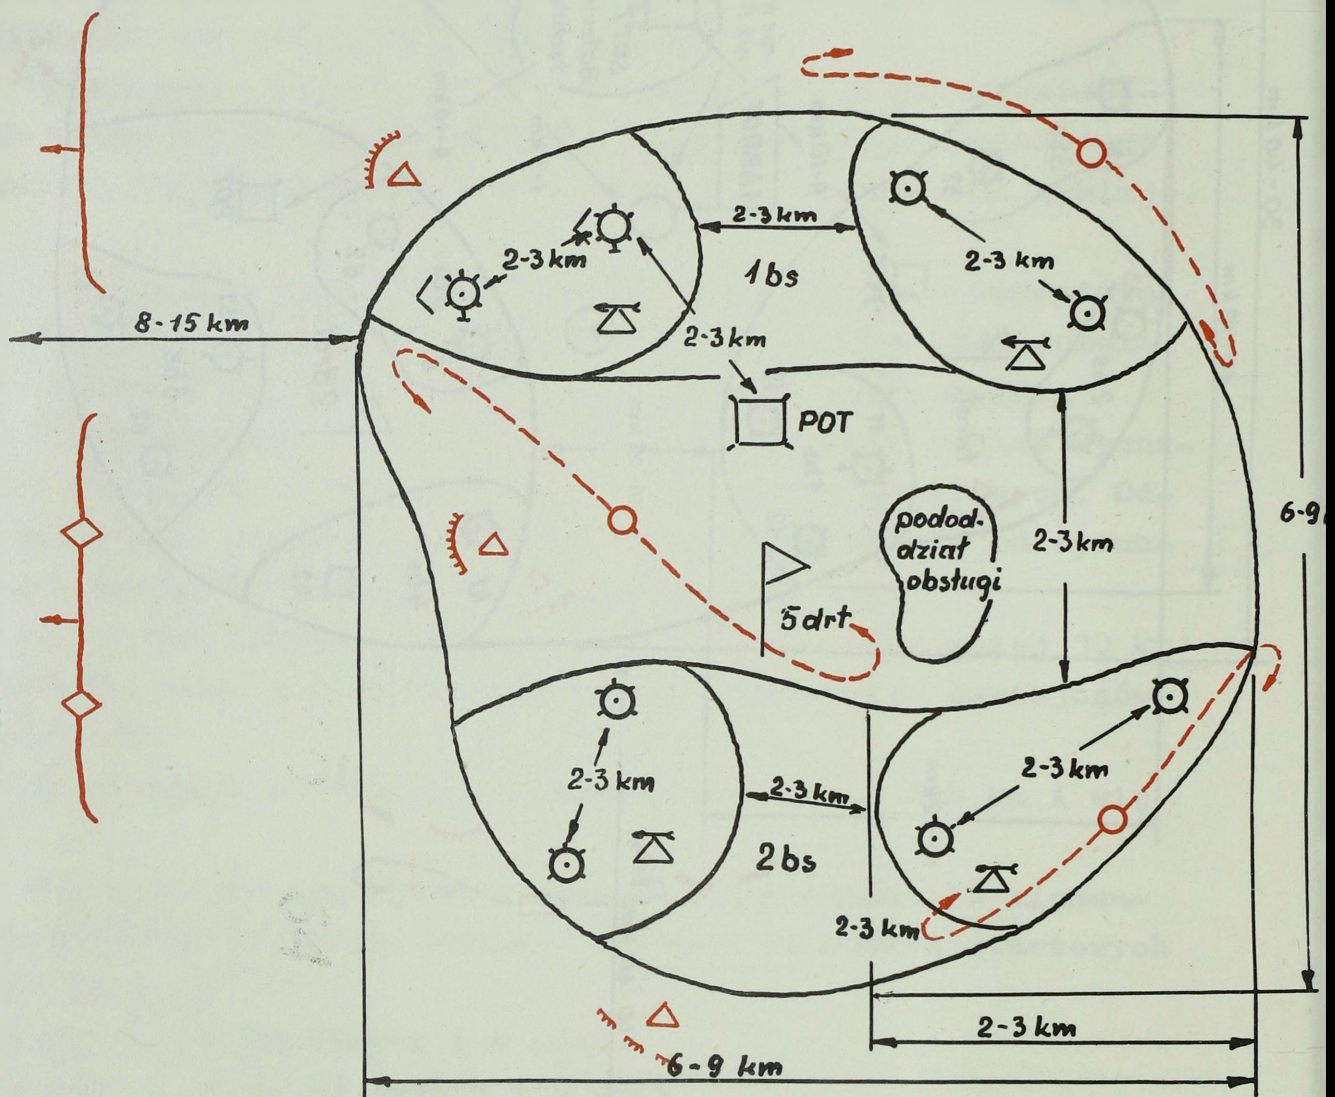 2-3 km
2-3 km
1 bs
2-3 km
8-15 km
2-3 km
POT
6-9
podod-
dział
obsługi
2-3 km
5 drt
2-3 km
2-3 km
2-3 km
2 bs
2-3 km
2-3 km
6-9 km